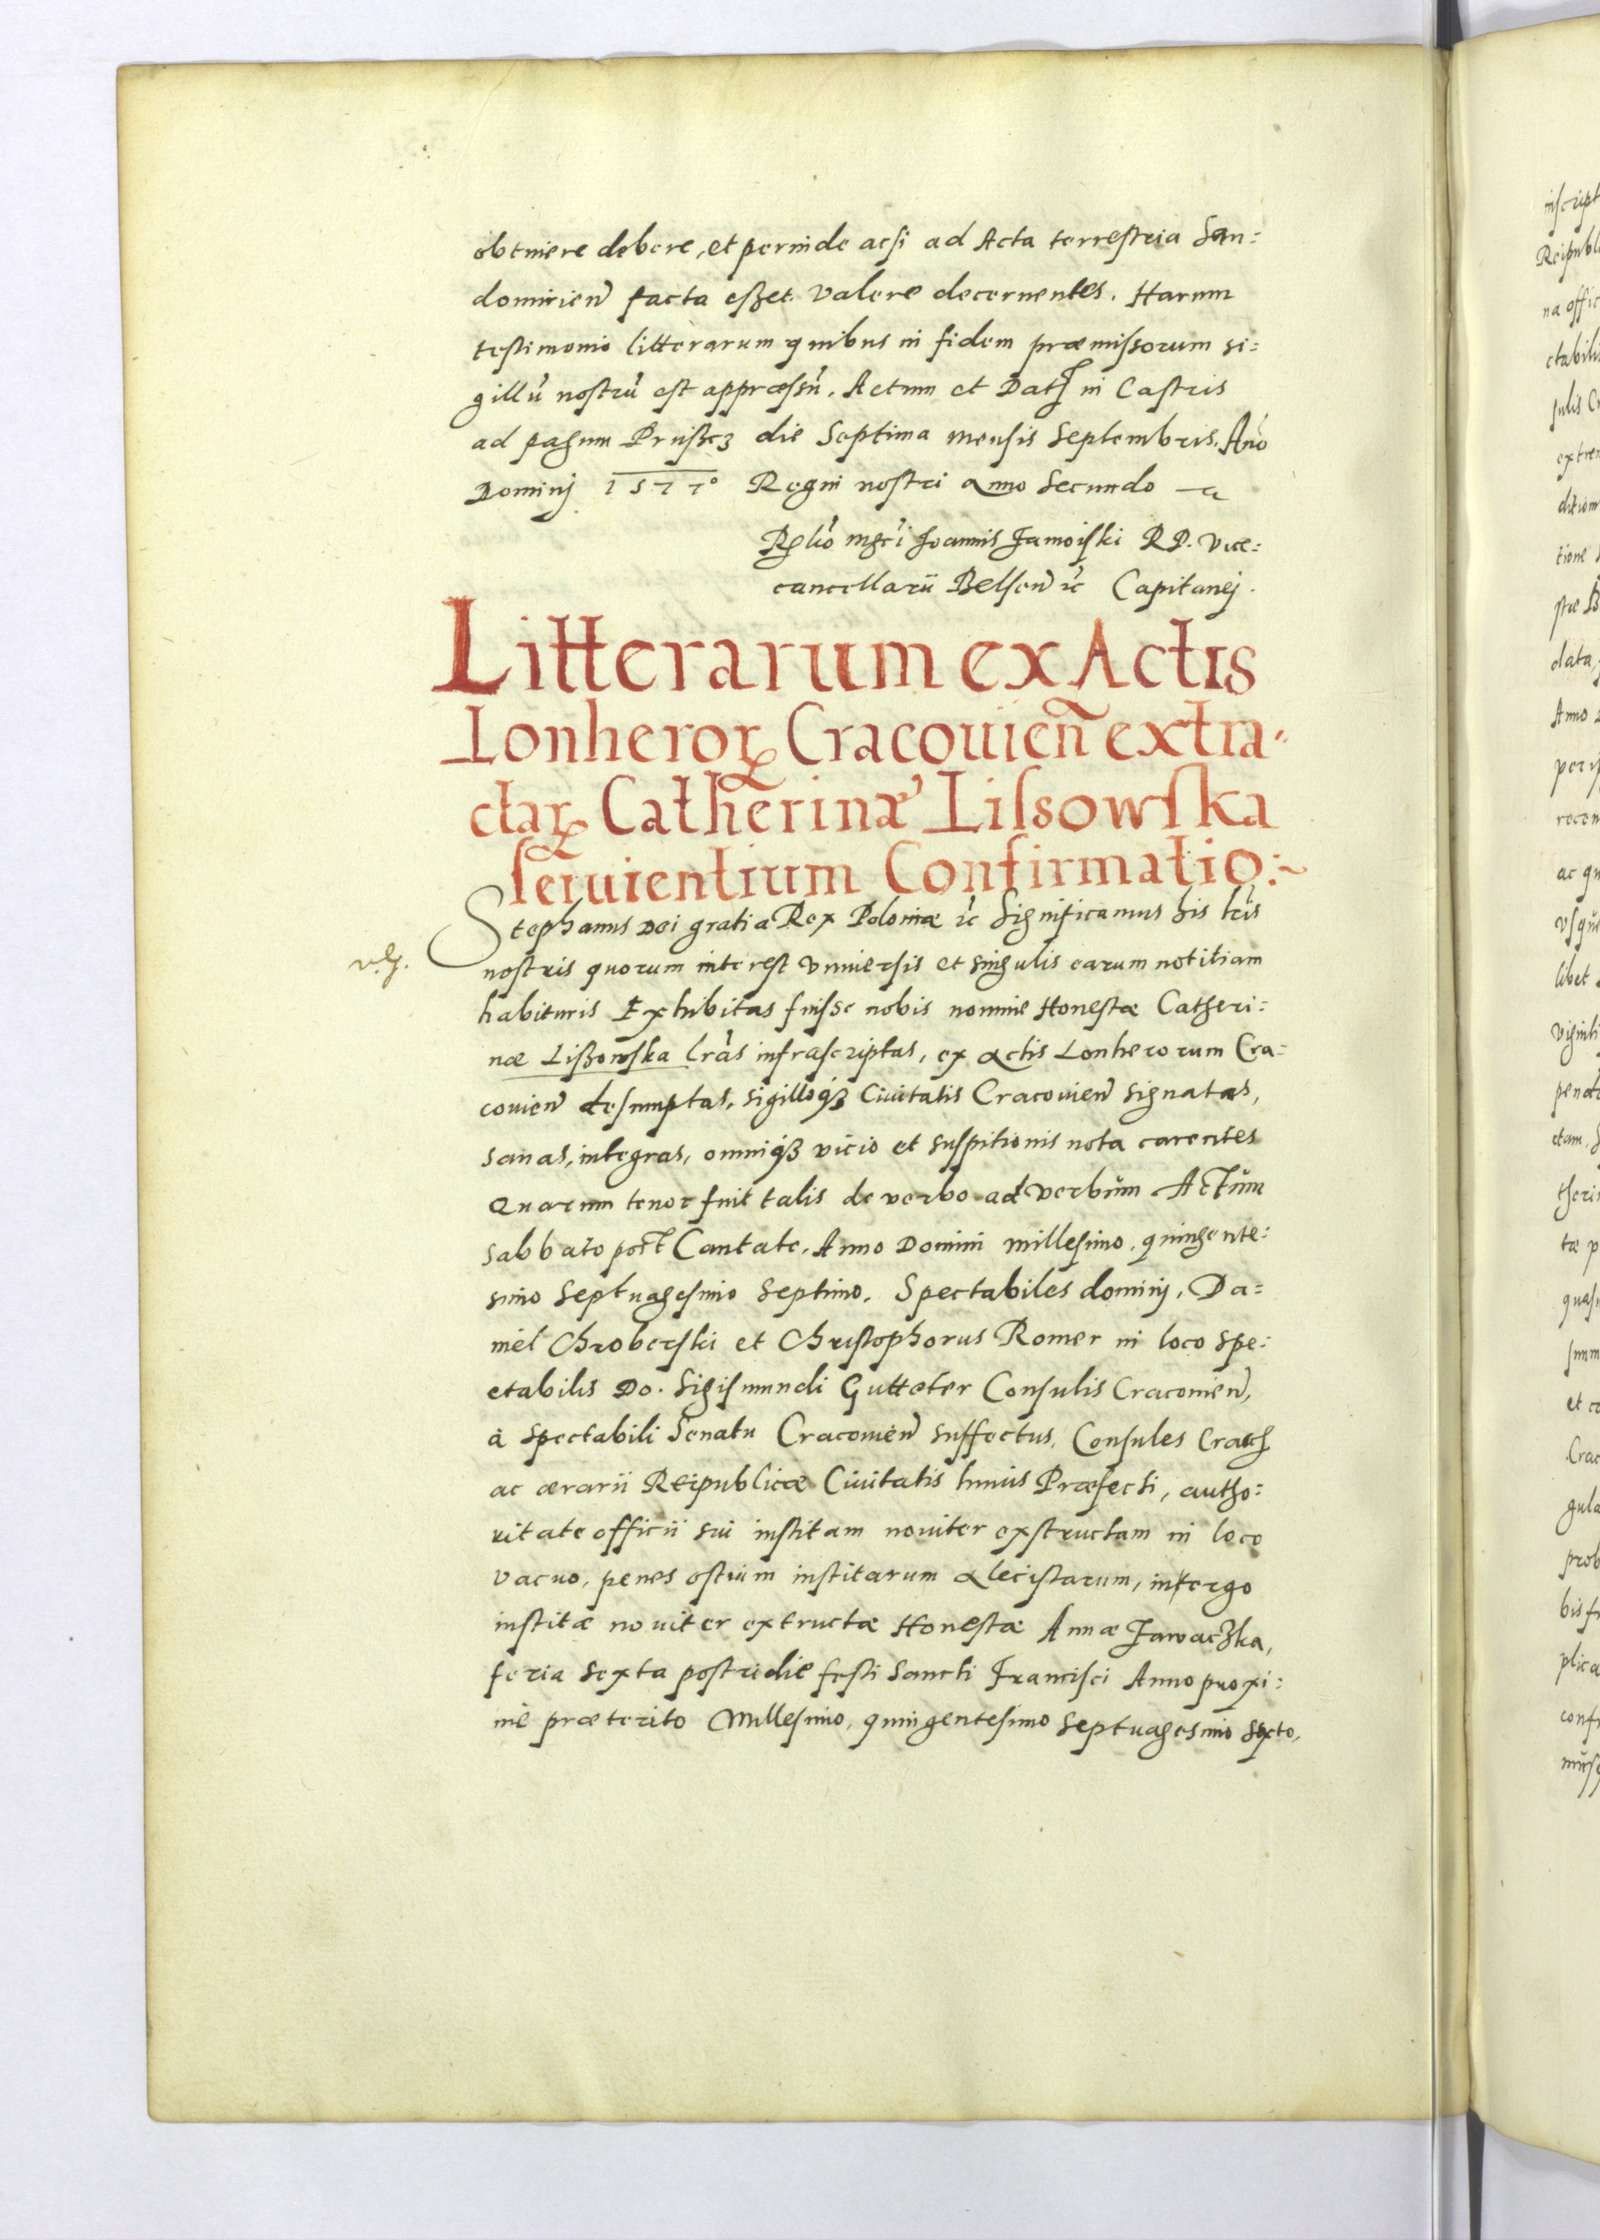 obtinere debere, et perinde acsi ad Acta terrestria San=
domirien̄ facta eßet valere decernentes. Harum
testimonio litterarum quibus in fidem præmissorum si=
gillū nostrū est appræssū. Actum et Dat in Castris
ad pagum Prußcz die Septima mensis Septembris. Año
Dominj 1577° Regni nostri anno Secundo
Rłio mgci Joannis Zamoiski RP. Vice=
cancellarii Belsen̄ ꝛc Capitanej.
Litterarum ex Actis
Lonheroꝝ Cracouien̄ extra-
ctaꝝ Catherinæ Lissowska
seruientium Confirmatio:~
Stephanus Dei gratia Rex Poloniæ ꝛc Significamus his lr̄is
nostris quorum interest vniuersis et singulis earum notitiam
habituris Exhibitas fuisse nobis nomine Honestæ Catheri=
næ Lißowska lr̄as infrascriptas, ex actis Lonherorum Cra=
couien̄ desumptas, sigilloqꝫ Ciuitatis Cracouien̄ signatas,
sanas, integras, omniqꝫ vicio et suspitionis nota carentes
Quarum tenor fuit talis de verbo ad verbum Actum
sabbato post Cantate. Anno Domini millesimo, quingente=
simo Septuagesimo Septimo. Spectabiles dominj, Da=
niel Chroberski et Christophorus Romer in loco spe=
ctabilis Do. Sigismundi Gutteter Consulis Cracouien̄,
à Spectabili Senatu Cracouien̄ suffectus, Consules Crac
ac ærarii Reipublicæ Ciuitatis huius Præfecti, autho=
ritate officii sui institam nouiter exstructam in loco
vacuo, penes ostium institarum alecistarum, intergo
institæ nouiter extructæ Honestæ Annæ Jawaczka,
feria sexta postridie festi Sancti Francisci Anno proxi=
me præterito Millesimo, quingentesimo Septuagesimo Sexto,